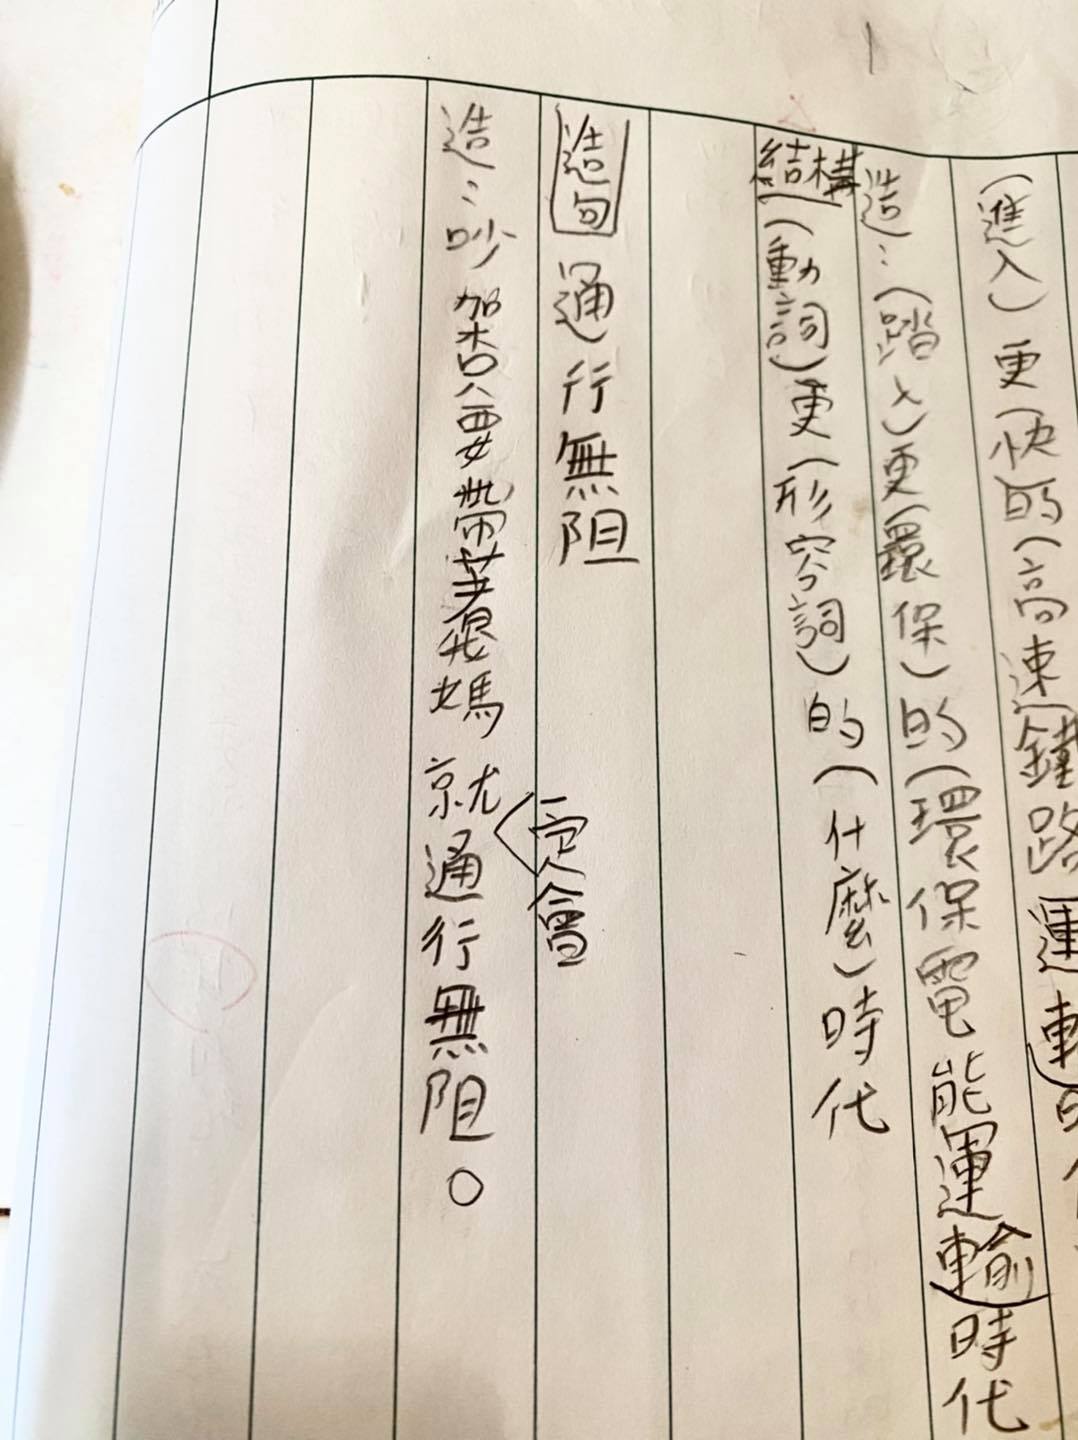 (進入)更(快的(高速鐵路運輸時代
造:(踏入)更(環保)的(環保電能運輸時代
結構(動詞)更(形容詞)的(什麼)時代
造句 通行無阻
造:吵架只要帶著我媽就一定會通行無阻。